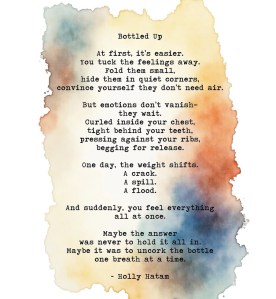 Bottled Up
At first, it's easier.
You tuck the feelings away.
Fold them small,
hide them in quiet corners,
convince yourself they don't need air.
But emotions don't vanish—
they wait.
Curled inside your chest,
tight behind your teeth,
pressing against your ribs,
begging for release.
One day, the weight shifts.
A crack.
A spill.
A flood.
And suddenly, you feel everything
all at once.
Maybe the answer
was never to hold it all in.
Maybe it was to uncork the bottle
one breath at a time.
- Holly Hatam